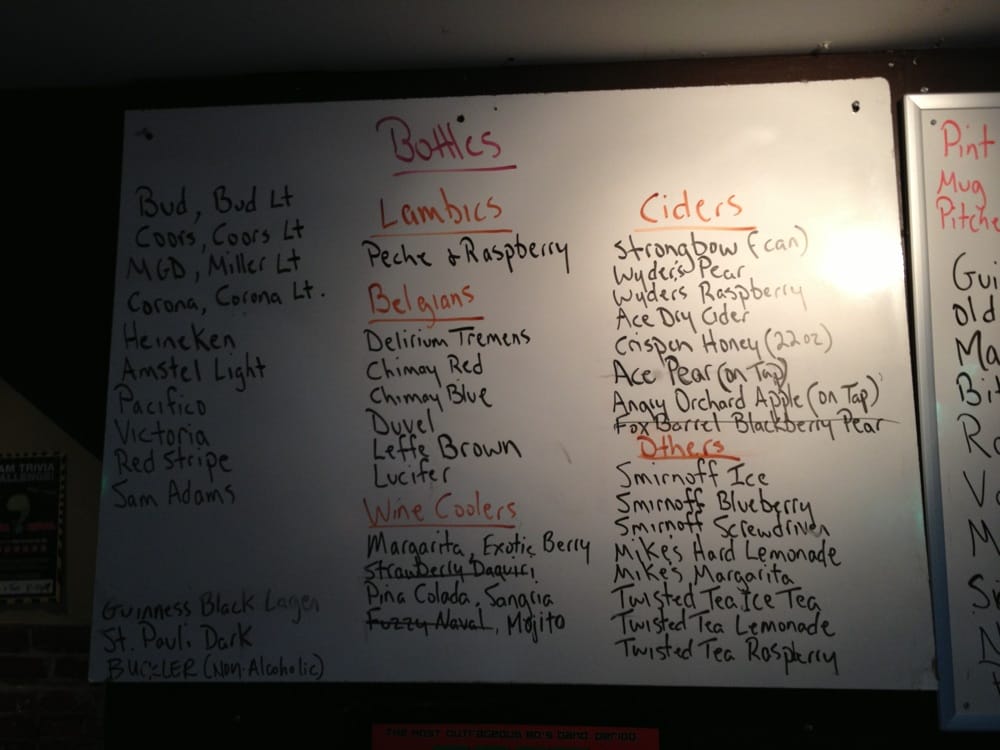 Bottles
Bud, Bud Lt
Coors, Coors Lt
MGD, Miller Lt
Corona, Corona Lt.
Heineken
Amstel Light
Pacifico
Victoria
Red Stripe
Sam Adams
Guinness Black Lager
St. Pauli Dark
BUCKLER (Non-Alcoholic)
Lambics
Peche & Raspberry
Belgians
Delirium Tremens
Chimay Red
Chimay Blue
Duvel
Leffe Brown
Lucifer
Wine Coolers
Margarita, Exotic Berry
Strawberry Daquiri
Piña Colada, Sangria
Fuzzy Naval, Mojito
Ciders
Strongbow (can)
Wyder's Pear
Wyders Raspberry
Ace Dry Cider
Crispen Honey (22oz)
Ace Pear (on Tap)
Angry Orchard Apple (on Tap)
Fox Barrel Blackberry Pear
Others
Smirnoff Ice
Smirnoff Blueberry
Smirnoff Screwdriver
Mikes Hard Lemonade
Mikes Margarita
Twisted Tea Ice Tea
Twisted Tea Lemonade
Twisted Tea Raspberry
Pint
Mug
Pitche
Gui
Old
Ma
Bit
AM TRIVIA
THE MOST OUTRAGEOUS 80'S BAND, PERIOD.